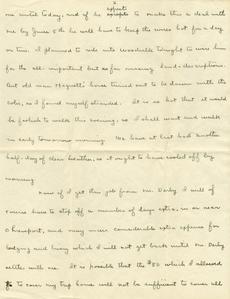 expects
me until today, and if he to make this a deal with
me by June 5th he will have to keep the wires hot for a day
on time. I planned to ride into Woodville tonight to wire him
for the all-important but so far missing land-descriptions.
But old man Magnetti's horse turned out to be down with the
colic, so I found myself stranded. It is so hot that it would
be foolish to walk this evening, so I shall wait and walk
in early tomorrow morning. We have at last had another
half-day of clear weather, so it ought to have cooled off by
morning.
Now if I get this job from Mr. Darby I will of
course have to stop off a number of days extra, in or near
Shreveport, and incur considerable extra expense for
lodging and livery which I will not get back until Mr. Darby
settles with me. It is possible that the $50 which I allowed
to cover my trip home will not be sufficient to cover all